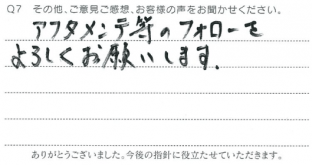 Q7 その他、ご意見ご感想、お客様の声をお聞かせください。
アフタメンテ等のフォローを
よろしくお願いします。
ありがとうございました。今後の指針に役立たせていただきます。